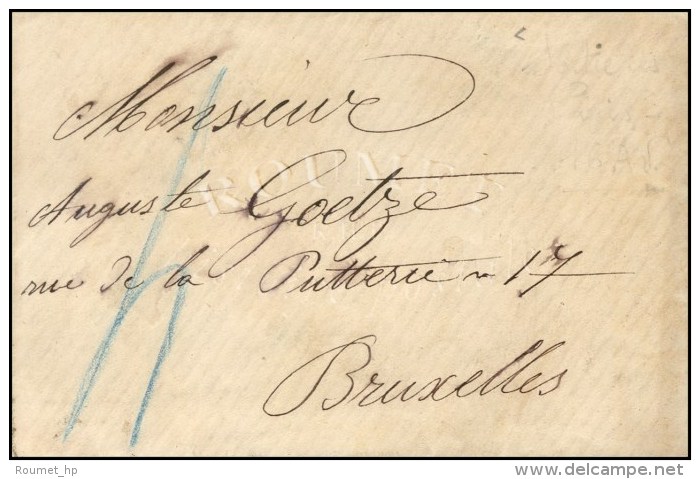 Monsieur
Auguste Goetze
rue de la Putterie n 17
Bruxelles
4
ROUMET
Roumet_hp
delcampe.net